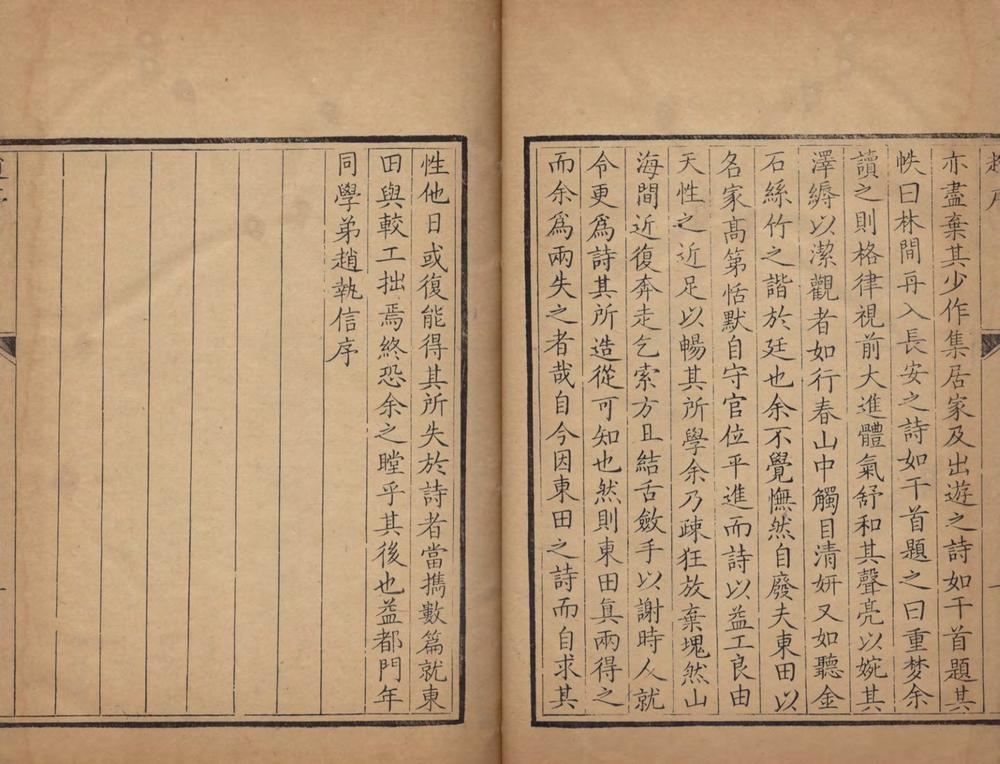 趙序
亦盡棄其少作集居家及出遊之詩如干首題其
帙曰林間再入長安之詩如干首題之曰重梦余
讀之則格律視前大進體氣舒和其聲亮以婉其
澤縟以潔觀者如行春山中觸目清妍又如聽金
石絲竹之諧於廷也余不覺憮然自廢夫東田以
名家髙第恬默自守官位平進而詩以益工良由
天性之近足以暢其所學余乃疎狂放棄塊然山
海間近復奔走乞索方且結舌斂手以謝時人就
令更為詩其所造從可知也然則東田真兩得之
而余為兩失之者哉自今因東田之詩而自求其
性他日或復能得其所失於詩者當攜數篇就東
田與較工拙焉終恐余之瞠乎其後也益都門年
同學弟趙執信序